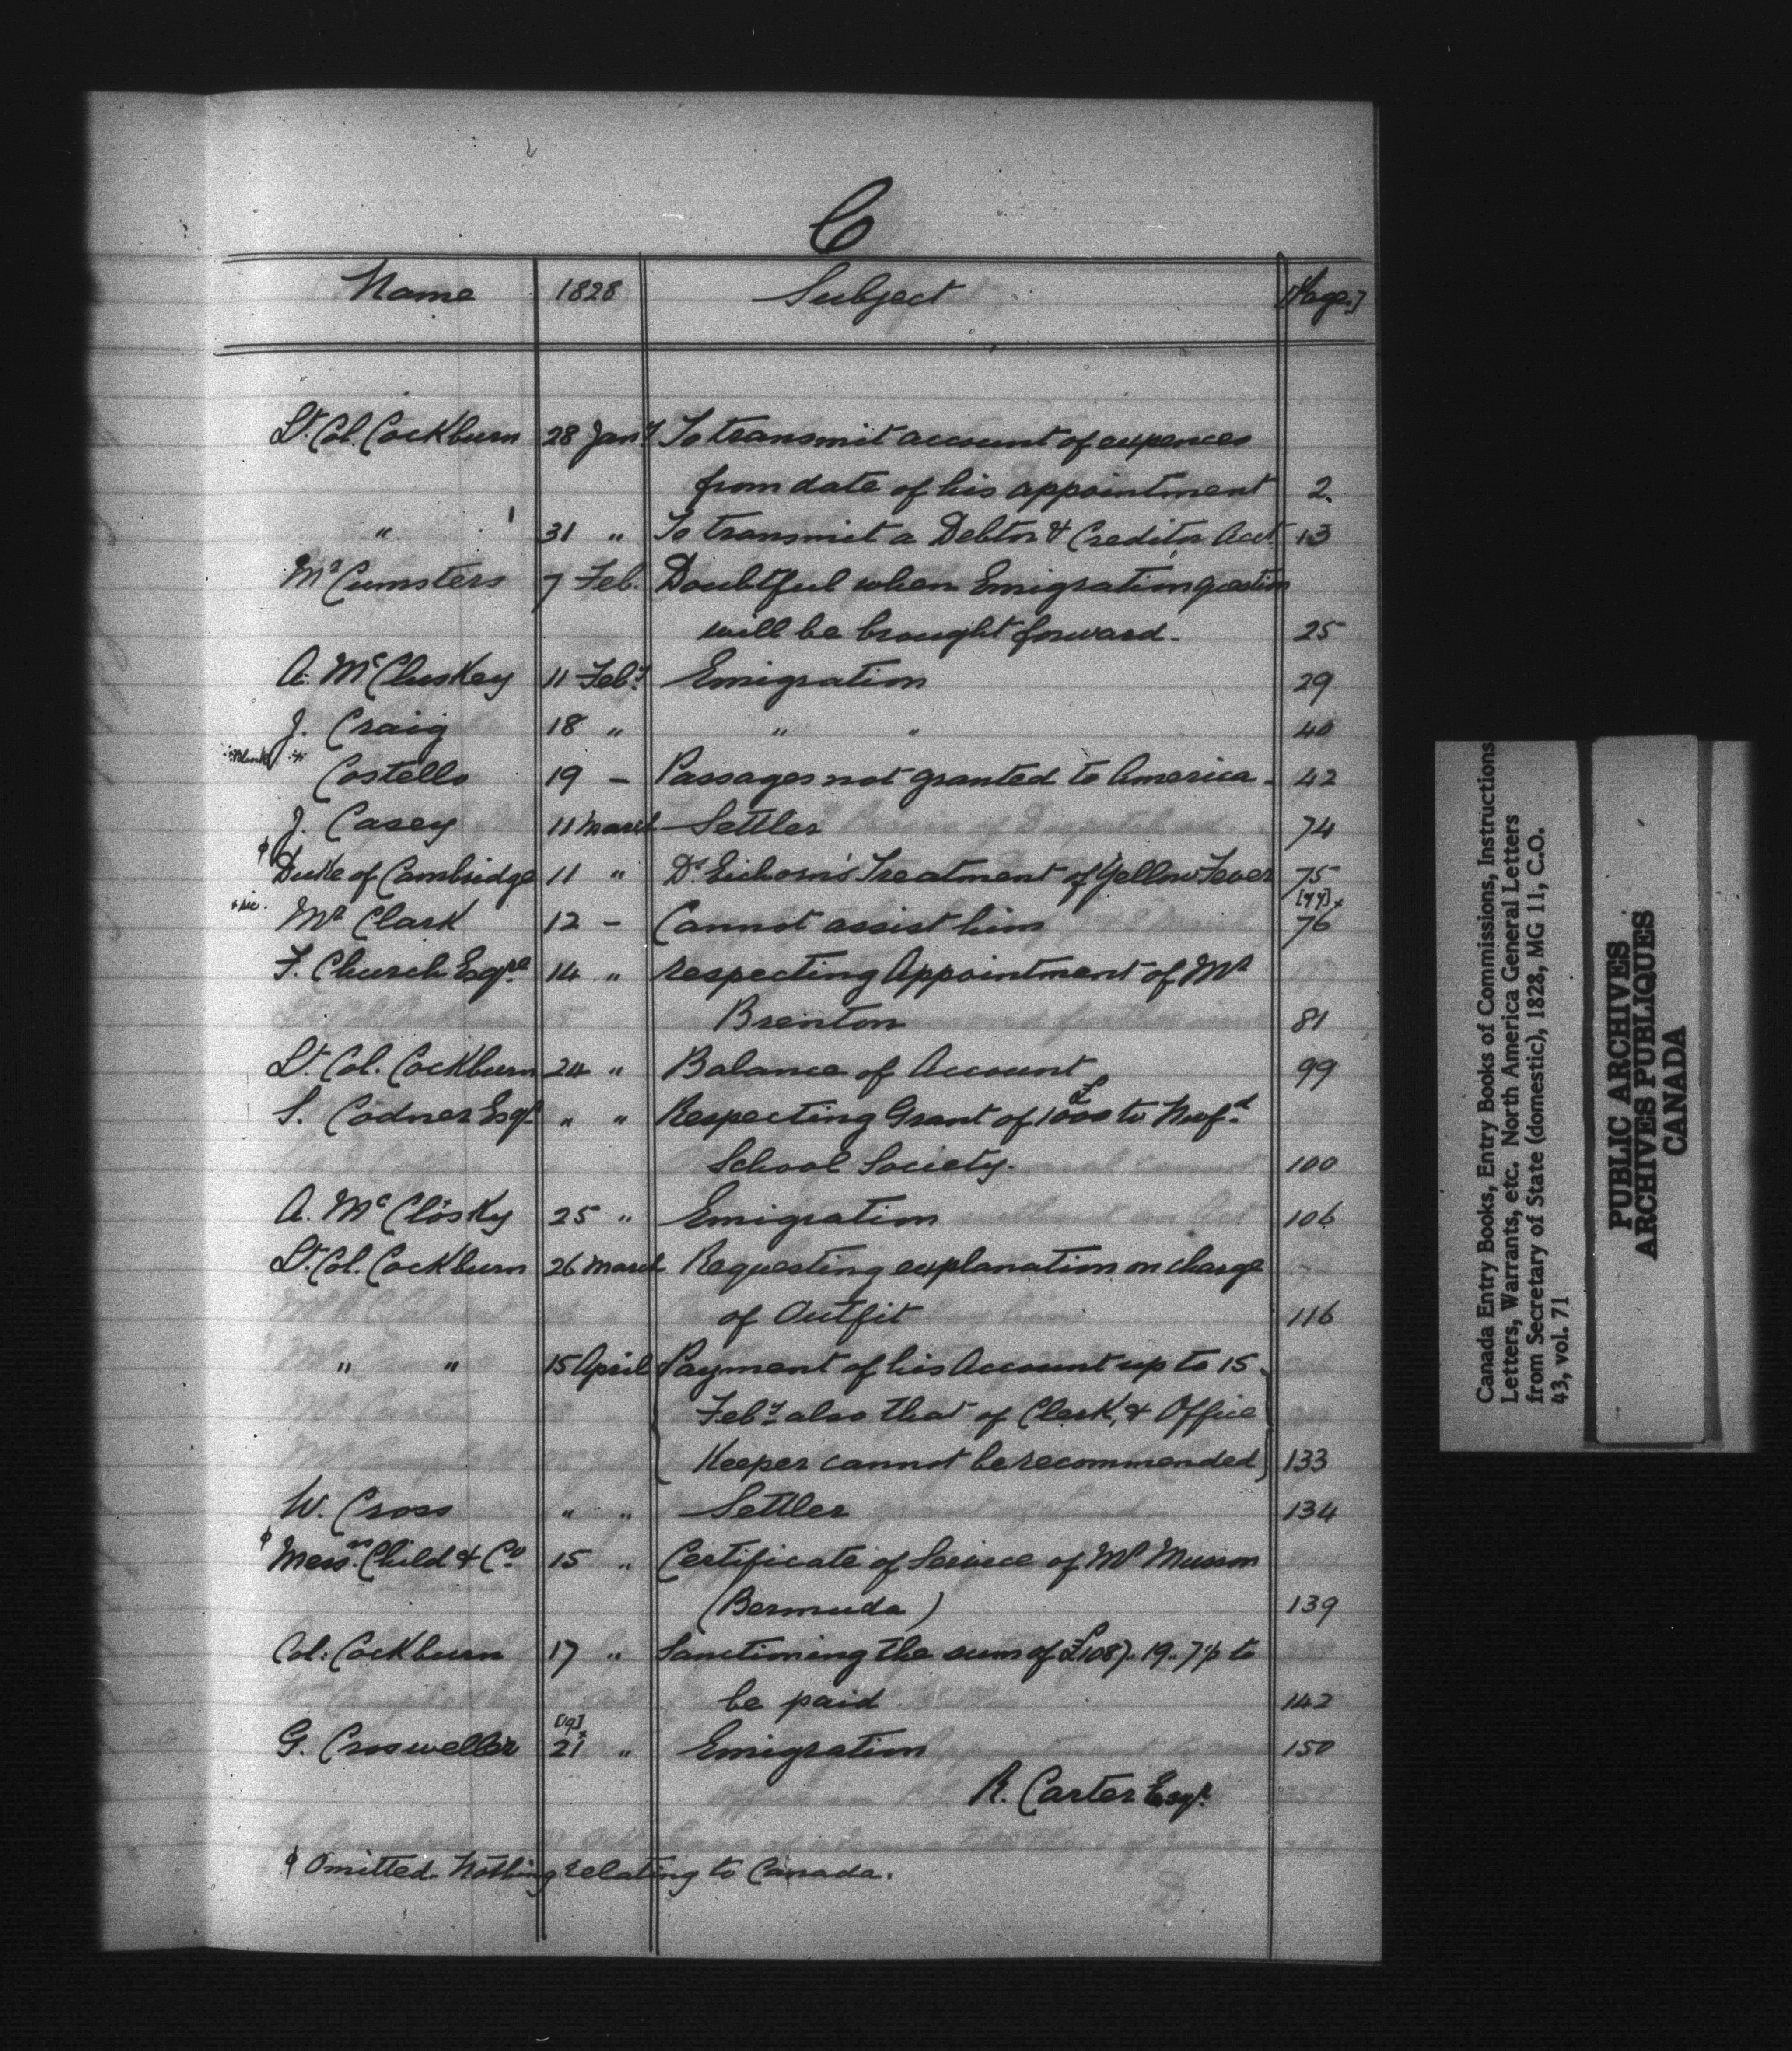 C
Name 1828 Subject [Page.]
Lt. Col. Cockburn 28 Jany To transmit account of expences
from date of his appointment 2.
" 31 " To transmit a Debtor & Creditor Acct. 13
Mr Cumsters 7 Feb. Doubtful when Emigration question
will be brought forward. 25
A. McCluskey 11 Feby Emigration 29
J. Craig 18 " " " 40
*Blank *
Costello 19 - Passages not granted to America - 42
J. Casey 11 March Settler 74
φ Duke of Cambridge 11 " Dr. Eichorn's Treatment of Yellow Fever 75
* sic. [77]*
Mr Clark 12 - Cannot assist him 76
F. Church Esqre 14 " respecting Appointment of Mr
Brenton 81
Lt. Col. Cockburn 24 " Balance of Account 99
S. Codner Esqr. " " Respecting Grant of £1000 to Newfd
School Society. 100
A. McClosky 25 " Emigration 106
Lt. Col. Cockburn 26 March Requesting explanation on charge
of Outfit 116
" " 15 April Payment of his Account up to 15
Feby. also that of Clerk, & Office
Keeper cannot be recommended 133
W. Cross " " Settler 134
φ Messrs. Child & Co 15 " Certificate of Service of Mr Musson
(Bermuda) 139
Col. Cockburn 17 " Sanctioning the sum of £1087.. 19.. 7½ to
be paid 142
[19]*
G. Crosweller 21 " Emigration 150
R. Carter Esqr.
φ Omitted. Nothing relating to Canada.
Canada Entry Books, Entry Books of Commissions, Instructions
Letters, Warrants, etc. North America General Letters
from Secretary of State (domestic), 1828, MG 11, C.O.
43, vol. 71
PUBLIC ARCHIVES
ARCHIVES PUBLIQUES
CANADA